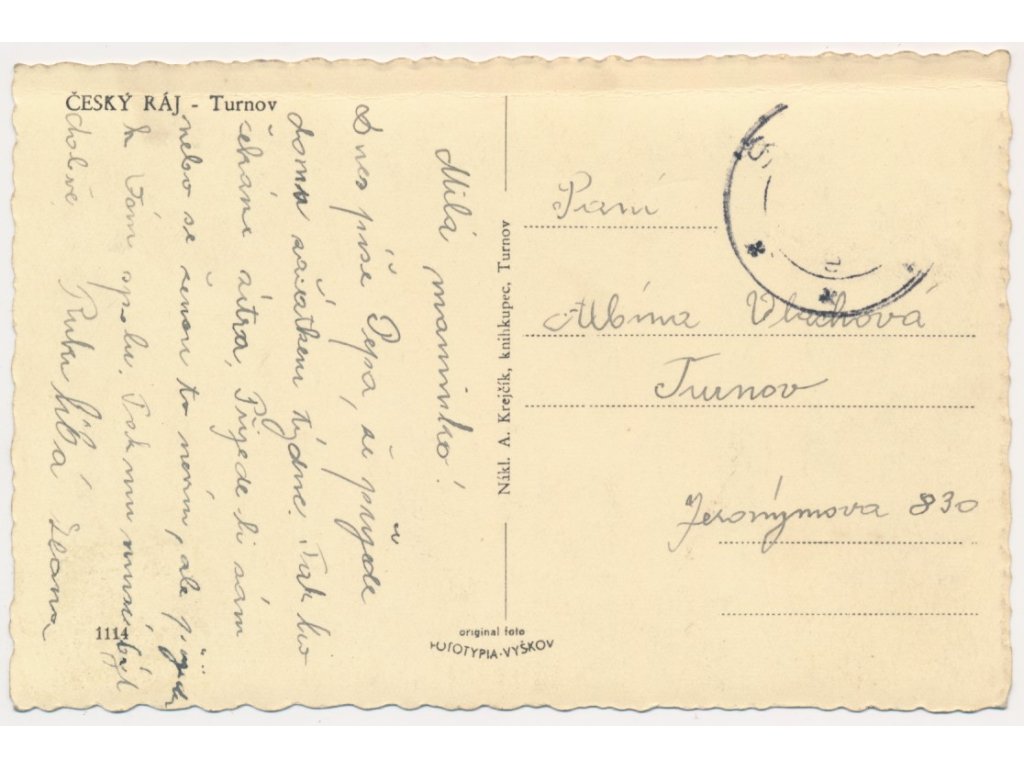 ČESKÝ RÁJ - Turnov
Milá maminko!
Dnes píse Pepa, že přijede
doma začátkem týdne. Tak ho
čekáme zítra. Přijede li sám
nebo se ženou to nevím, ale přijede
k Vám spolu. Tak mu musí být
dobře. Ruku líbá Zdena
1114
Nákl. A. Krejčík, knihkupec, Turnov
original foto
FOTOTYPIA-VYŠKOV
Paní
Albína Vlachová
Turnov
Jeronýmova 830